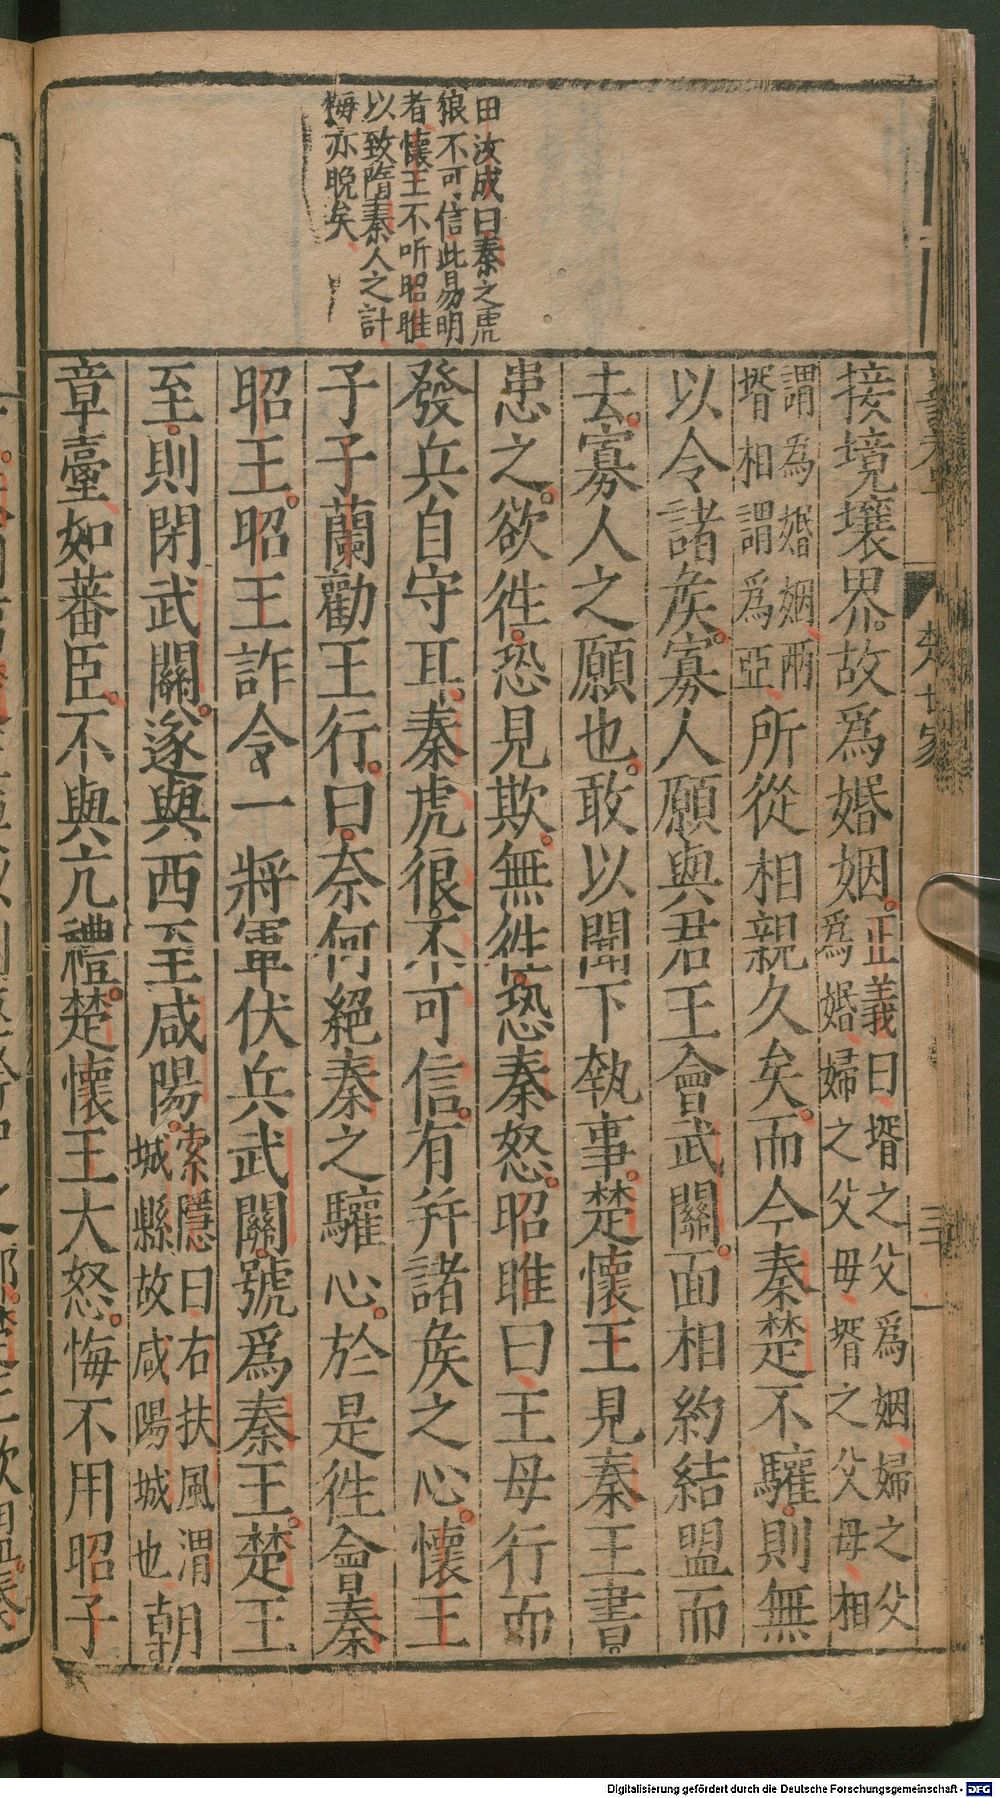 田汝成曰秦之虎
狼不可信此易明
者懷王不听昭睢
以致隋秦人之計
悔亦晚矣
楚世家
接境壤界故爲婚姻正義曰壻之父爲姻婦之父
爲婚婦之父母壻之父母相
謂為婚姻兩
壻相謂爲亞所從相親久矣而今秦楚不驩則無
以令諸矦寡人願與君王會武關面相約結盟而
去寡人之願也敢以聞下執事楚懷王見秦王書
患之欲徃恐見欺無徃恐秦怒昭睢曰王毋行而
發兵自守耳秦虎很不可信有并諸矦之心懷王
子子蘭勸王行曰奈何絕秦之驩心於是徃會秦
昭王昭王詐令一將軍伏兵武關號爲秦王楚王
至則閉武關遂與西至咸陽索隱曰右扶風渭
城縣故咸陽城也朝
章臺如蕃臣不與亢禮楚懷王大怒悔不用昭子
Digitalisierung gefördert durch die Deutsche Forschungsgemeinschaft - DFG